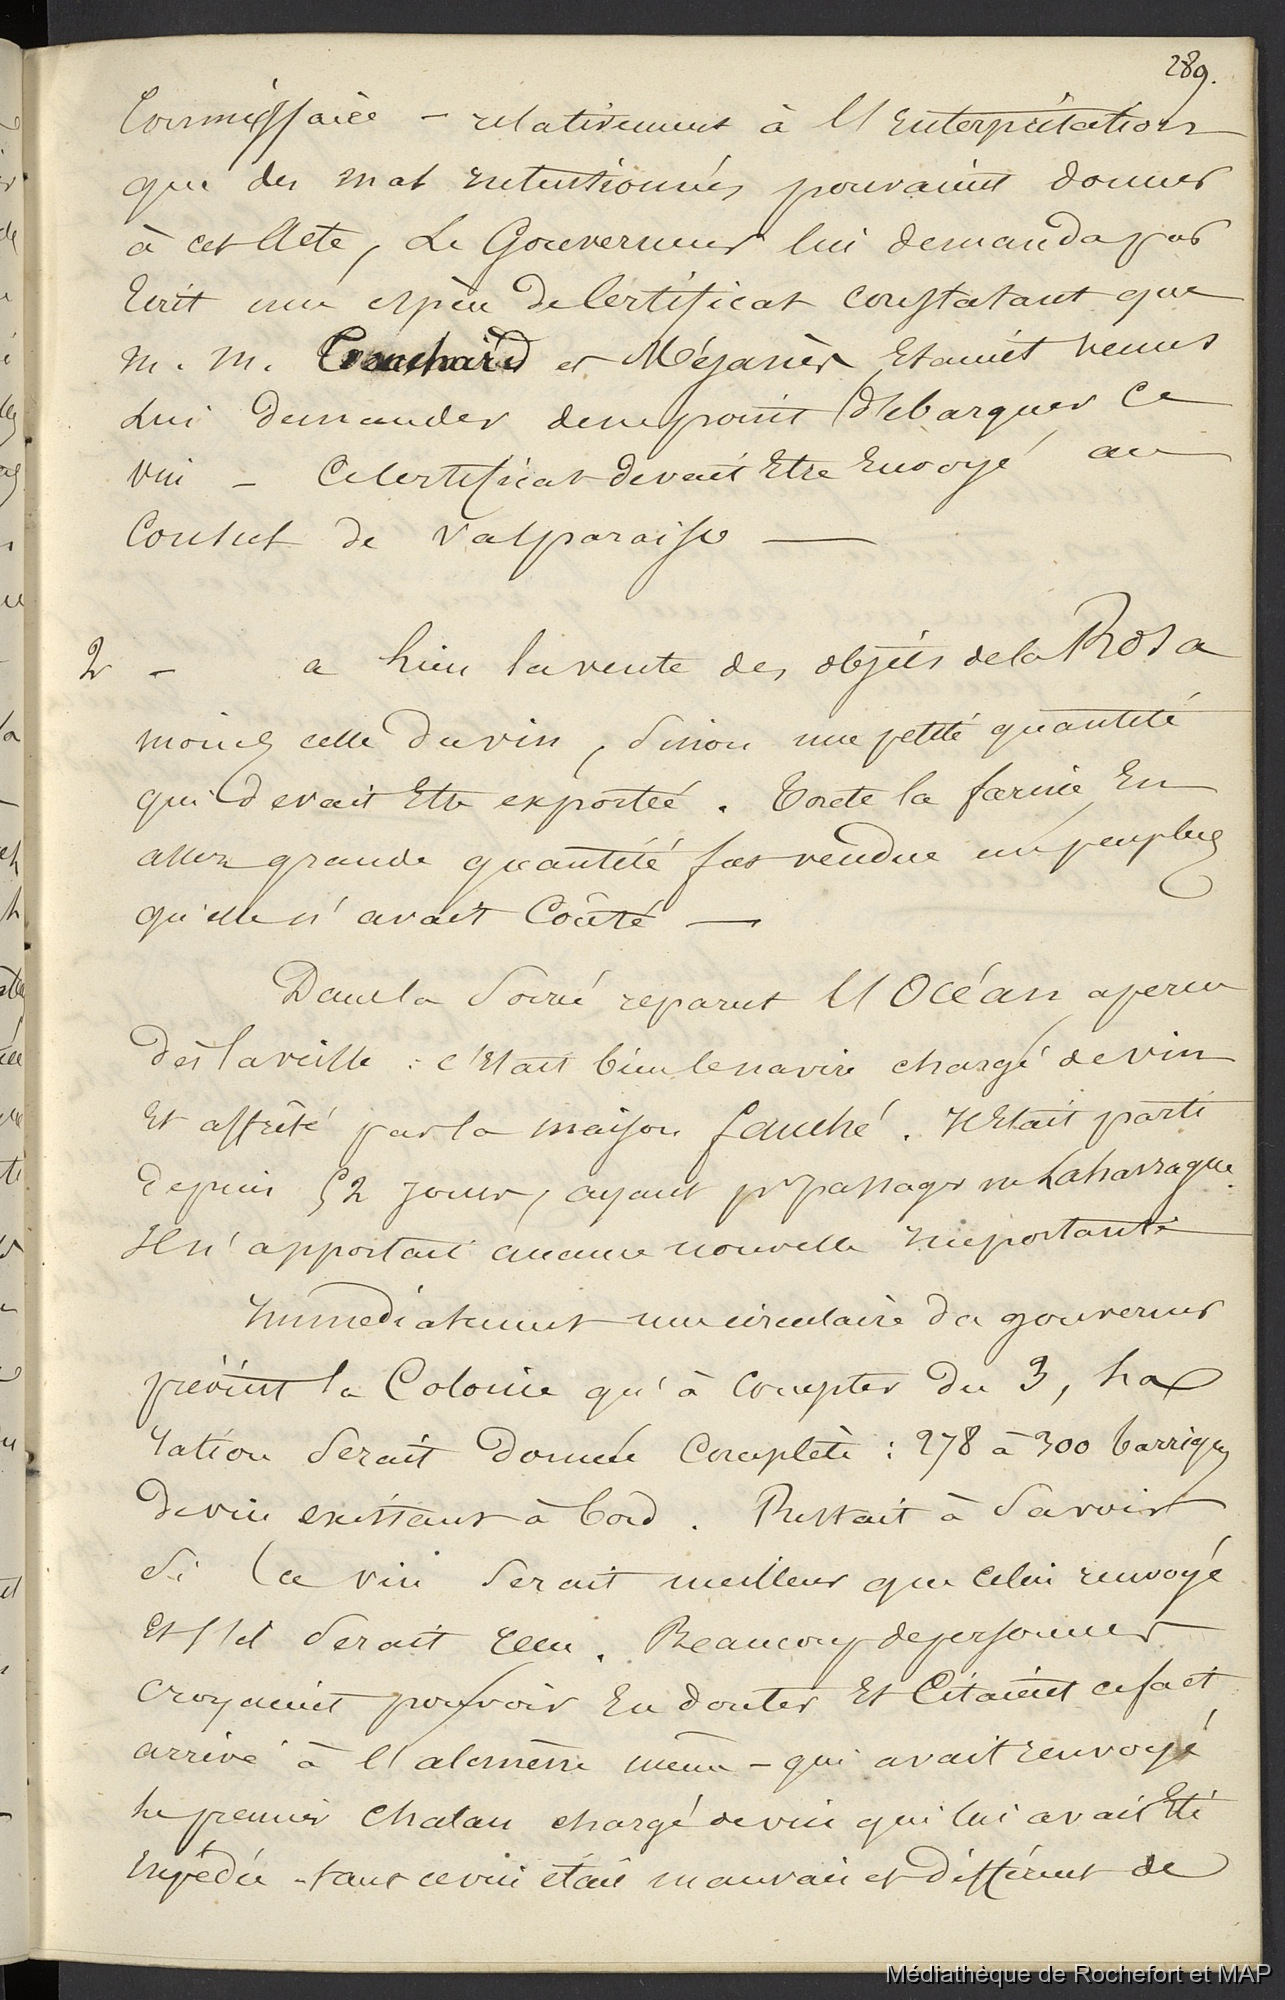 289.
Commissaire – relativement à l'Enterprétation
que des mal intentionnés pouvaient donner
à cet Acte, Le Gouverneur lui demanda par
Ecrit une espèce de Certificat constatant que
M. M. Touchard et Méjanès Etaient venus
Lui demander de ne point débarquer Ce
vin – Ce Certificat devait Etre Envoyé au
Consul de Valparaiso —
2 – a lieu la vente des objets de la Rosa
moins celle du vin, sinon une petite quantité
qui devait Etre exportée. Toute la farine En
assez grande quantité fut vendue un peu plus
qu'elle n'avait Coûté —
Dans la Soirée reparut l'Océan aperçu
dès la veille : c'Etait bien le navire chargé de vin
Et affrêté par la maison fauché. Il Etait parti
depuis 52 jours, ayant pr passager mr Laharrague.
Il n'apportait aucune nouvelle importante
Immediatement une circulaire du gouverneur
prévint la Colonie qu'à compter du 3, La
ration serait donnée Complète : 278 à 300 barriques
de vin existant à bord. Restait à Savoir
Si Ce vin Serait meilleur que celui renvoyé
Et s'il serait reçu. Beaucoup de personnes
croyaient pouvoir En douter Et Citaient ce fait
arrivé à l'alcmène même – qui avait renvoyé
le premier Chalan chargé de vin qui lui avait Eté
Expédié – tant ce vin était mauvais et différent de
Médiathèque de Rochefort et MAP